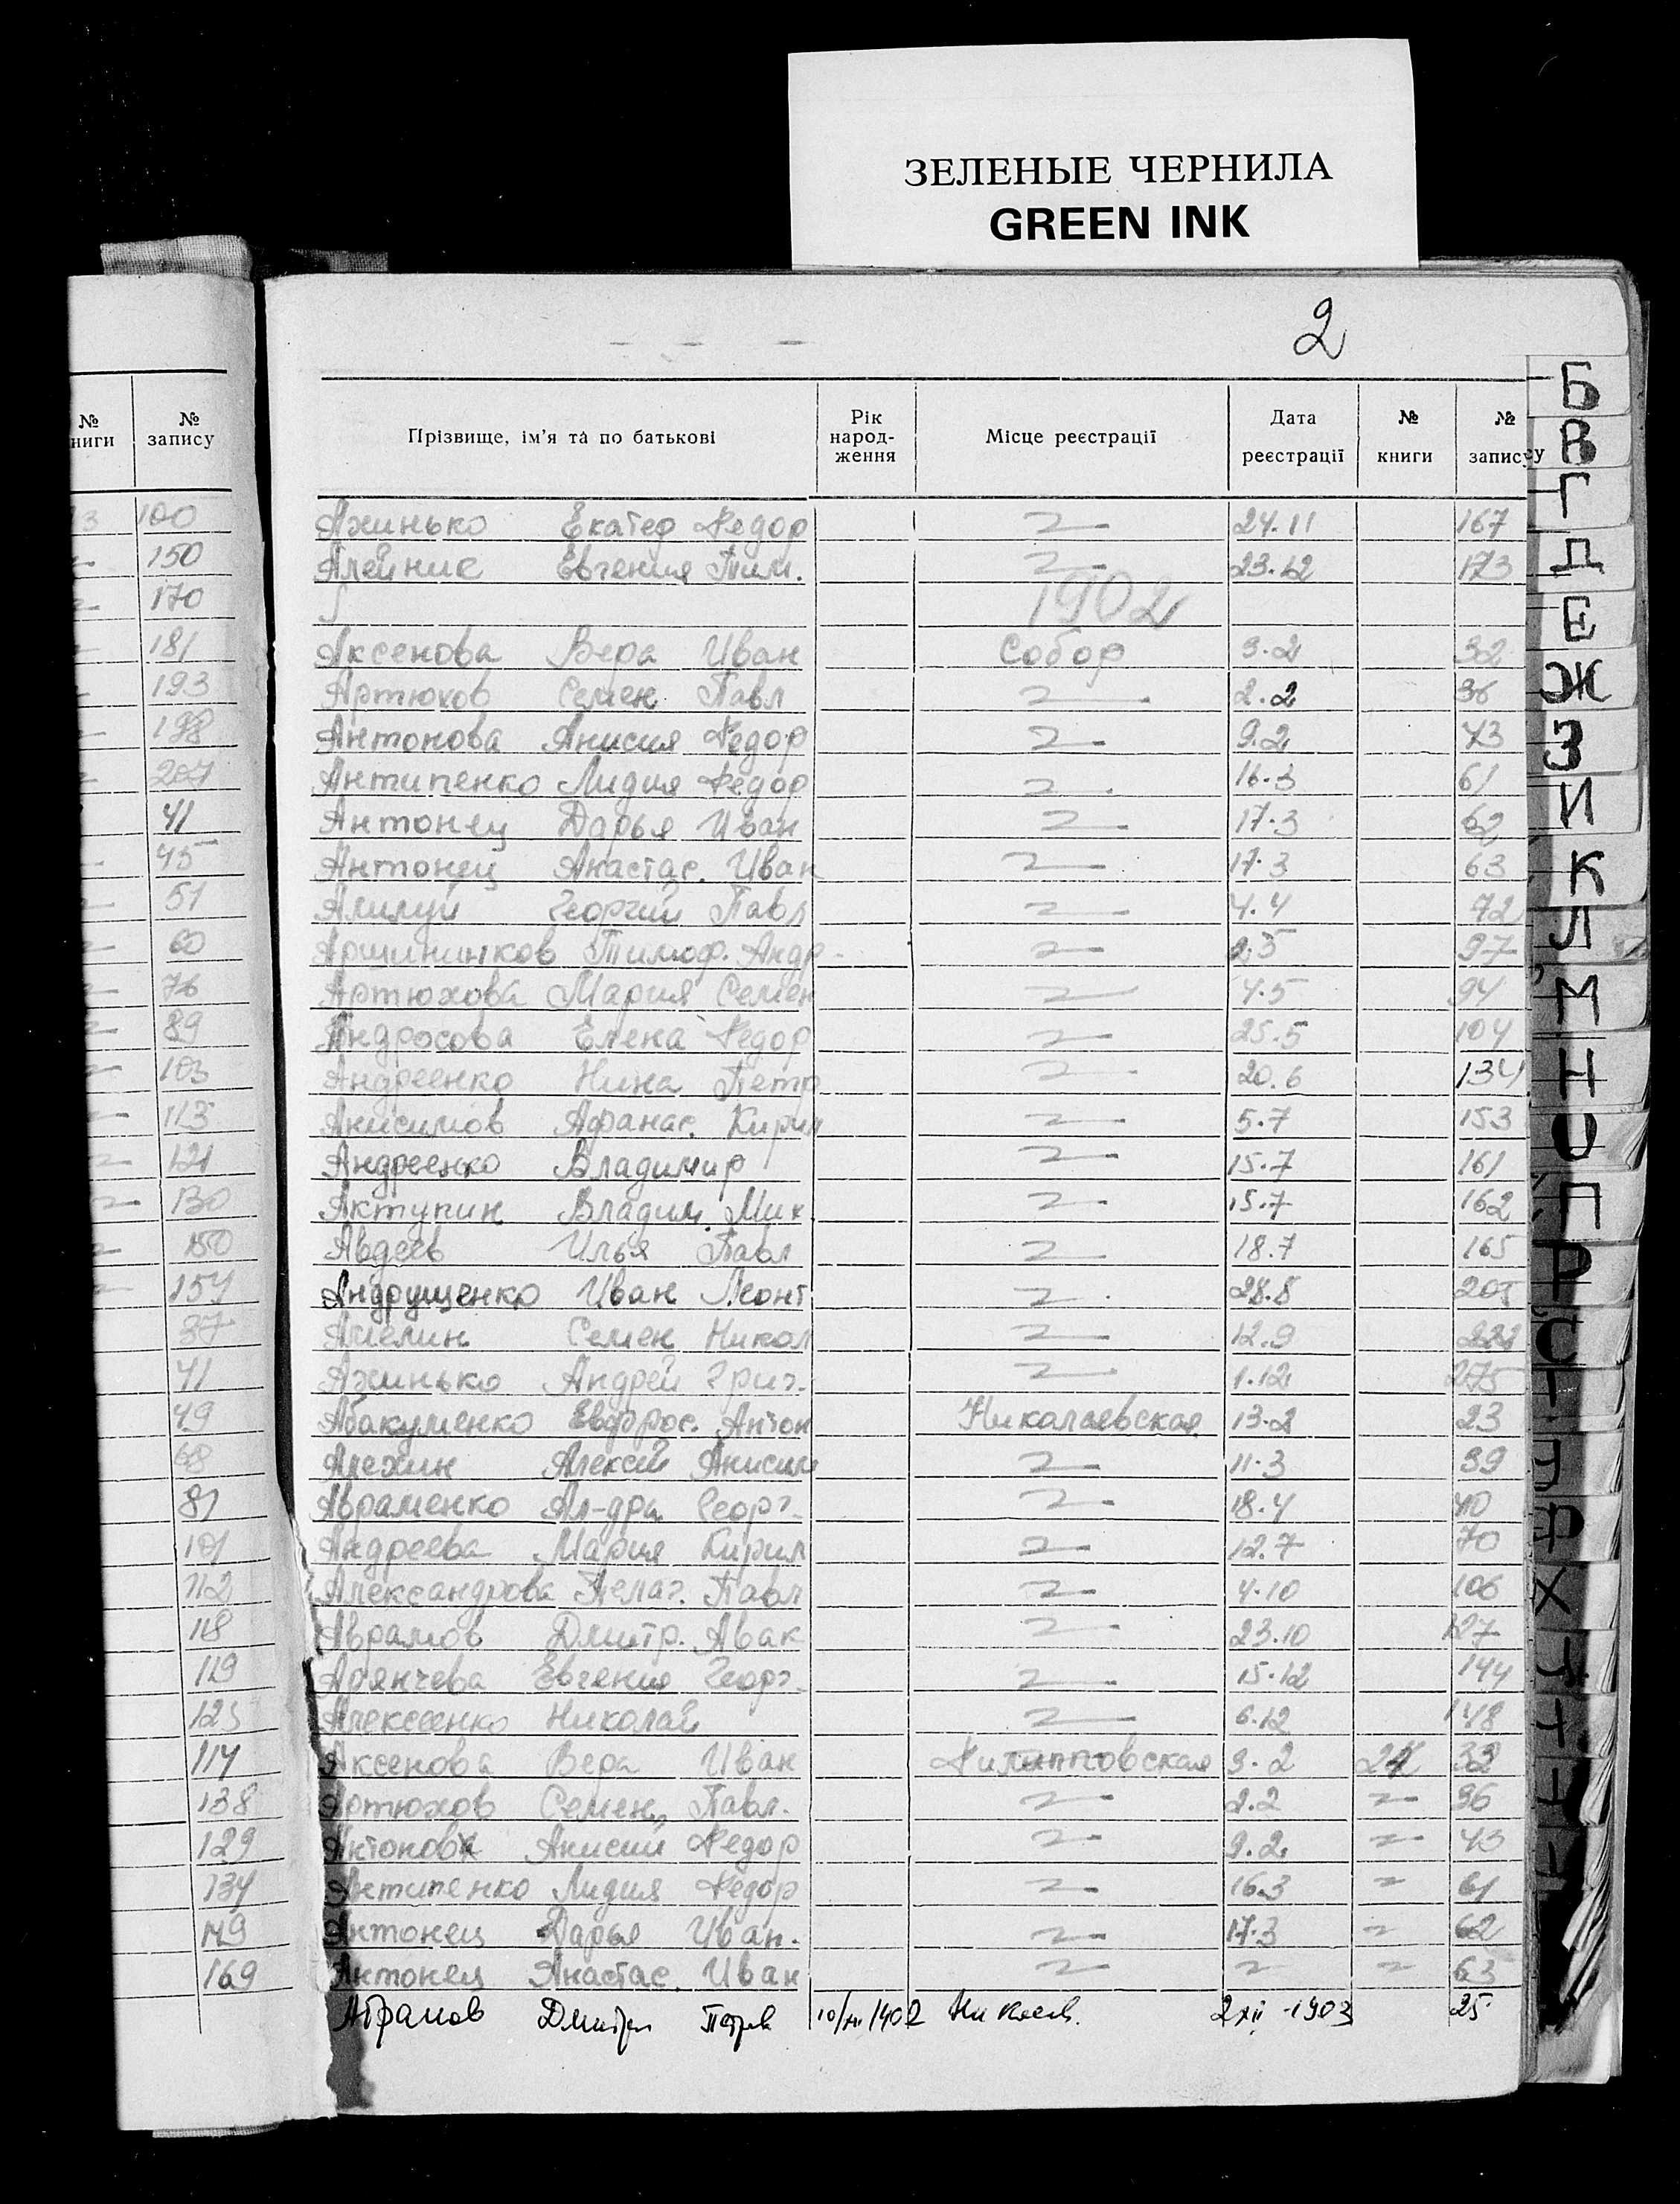 ЗЕЛЕНЫЕ ЧЕРНИЛА
GREEN INK
2
№ ниги № запису
Прізвище, ім'я та по батькові Рік народ-ження Місце реєстрації Дата реєстрації № книги № запису
100
150
170
181
193
198
207
41
45
51
60
76
89
103
113
121
130
150
154
37
41
49
68
81
101
112
118
119
125
114
138
129
134
149
169
Ажинько Екатер Федор 24.11 167
Алейник Евгения Тим. 23.12 173
1902
Аксенова Вера Иван Собор 9.2 32
Артюхов Семен Павл 2.2 36
Антонова Анисия Федор 9.2 43
Антипенко Лидия Федор 16.3 61
Антонец Дарья Иван 17.3 62
Антонец Анастас. Иван 17.3 63
Алилуй Георгий Павл 4.4 72
Аршинников Тимоф. Андр 2.5 97
Артюхова Мария Семен 4.5 94
Андросова Елена Федор 25.5 104
Андреенко Нина Петр 20.6 134
Анисимов Афанас. Кирил 5.7 153
Андреенко Владимир 15.7 161
Актупин Владим. Мих 15.7 162
Авдеев Илья Павл 18.7 165
Андрущенко Иван Леонт 28.8 205
Амелин Семен Никол 12.9 222
Ажинько Андрей Григ. 1.12 275
Абакуменко Евфрос. Антон Николаевская 13.2 23
Алехин Алексей Анисим 11.3 39
Авраменко Ал-дра Георг. 18.4 40
Андреева Мария Кирил 12.7 70
Александрова Пелаг. Павл 4.10 106
Аврамов Дмитр. Авак 23.10 127
Евгения Георг. 15.12 144
Алексеенко Николай 6.12 148
Аксенова Вера Иван Филипповская 9.2 32
Артюхов Семен Павл. 2.2 36
Антонова Анисии Федор 9.2 43
Антипенко Лидия Федор 16.3 61
Антонец Дарья Иван. 17.3 62
Антонец Анастас. Иван 63
Абрамов Дмитри Петров Николаев. 2 XII 1903 25
Б
В
Г
Д
Е
Ж
З
И
К
Л
М
Н
О
П
Р
С
Т
Х